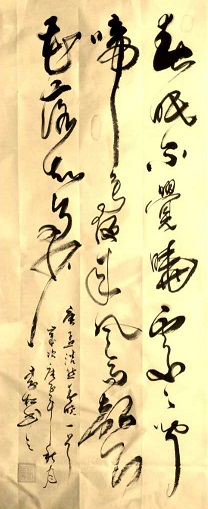 春眠不覺曉處々聞
啼鳥夜來風雨聲
花落知多少
唐孟浩然春曉一首
歲次